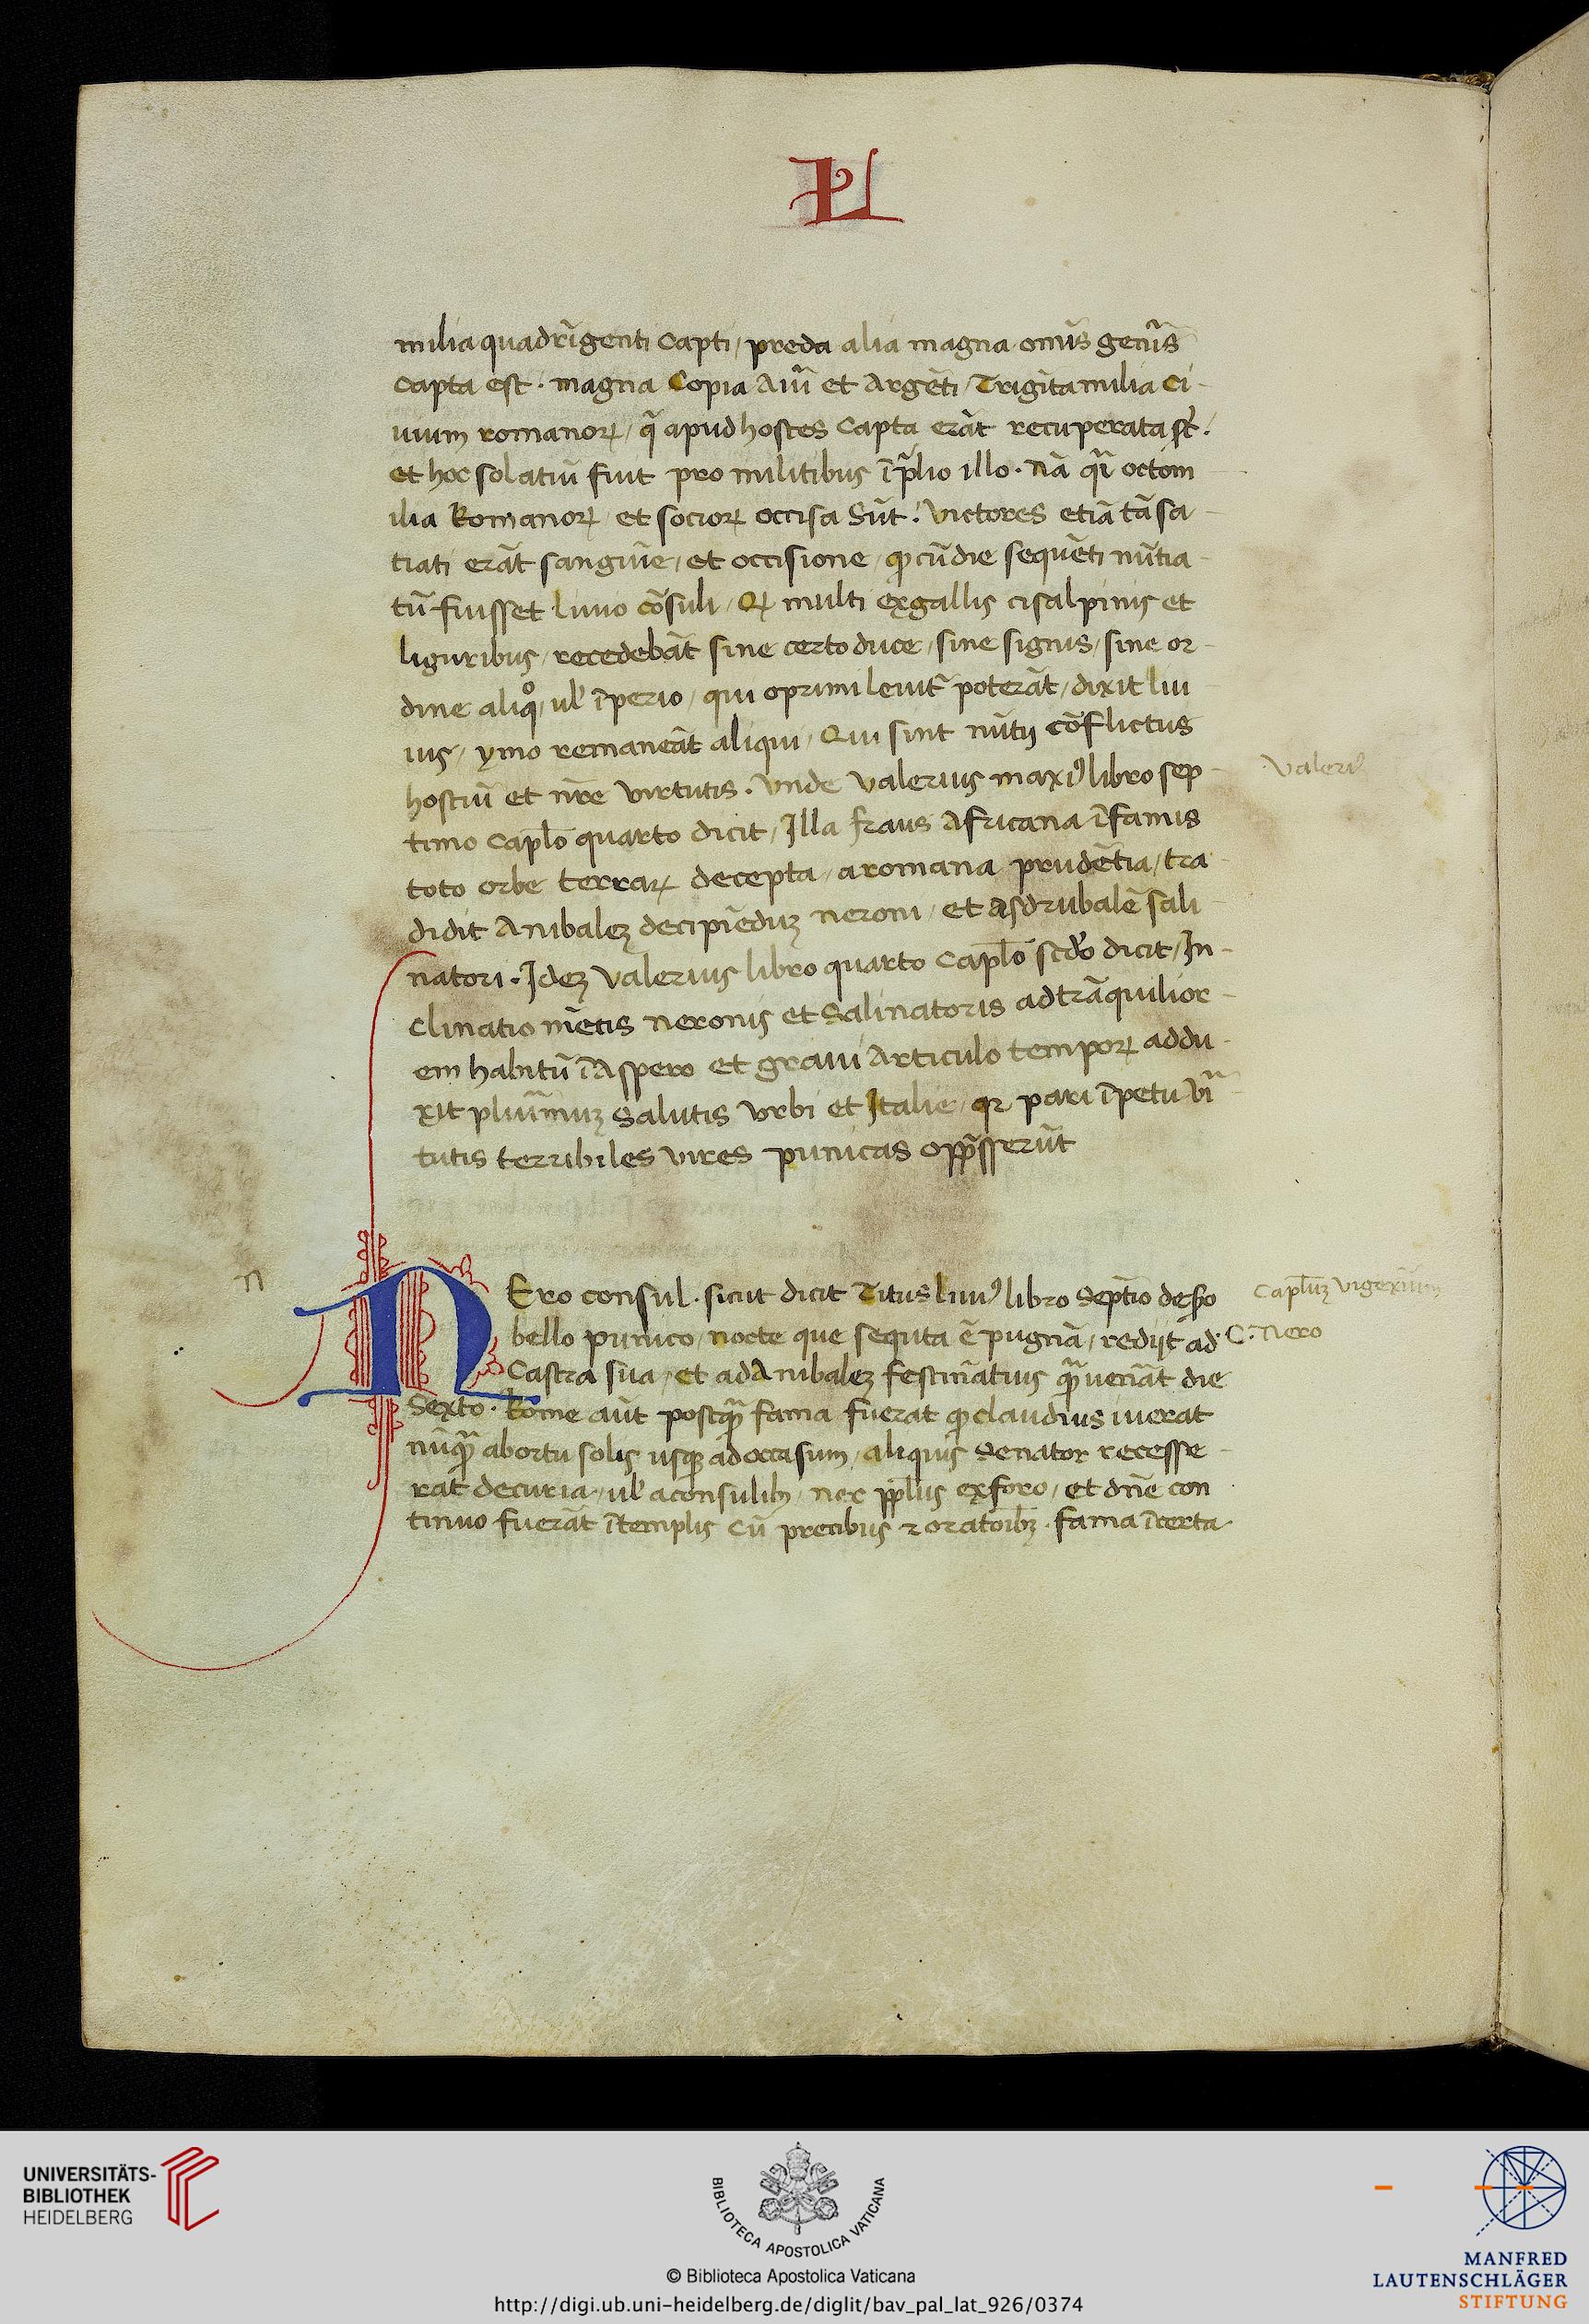 L
milia quadrĩgenti Capti / preda alia magna om̃is gen̄is
Capta est · magna Copia Aur̃i et Argẽti / Trigĩta milia Ci-
uium romanoꝝ / q̃ apud hostes Capta erãt recuperata st̃.
et hoc solatiũ fuit pro militibus ĩ p̃lio illo · nã qr̃i octom
ilia Romanoꝝ / et socioꝝ occisa Sũt. Victores etiã tã sa-
tiati erãt sanguĩe / et occisione / ꝙ cũ die sequẽti nũtia-
tũ fuisset liuio cõsuli / Qꝛ multi ex gallis cisalpinis et
liguribus / recedebãt sine certo duce / sine signis / sine or-
dine aliqͦ / ul' ĩperio / qui oprimi leuit̃ poterãt / dixit liu
ius / ymo remaneãt aliqui / Qui sint nũtij cõflictus
hostiũ et nr̃e virtutis · Vnde Valerius maxiꝰ libro sep-
timo Capl̃o quarto dicit / Illa fraus Africana ĩfamis
toto orbe terraꝝ decepta / a romana prudẽtia / tra-
didit Anibaleꝫ decipiẽduꝫ neroni / et asdrubalẽ sali
natori · Ideꝫ Valerius libro quarto Capl̃o scd̃o dicit / In-
clinatio mẽtis neronis et Salinatoris ad trãquilior-
em habitũ ĩ Aspero et graui Articulo tempoꝝ addu-
xit plur̃imuꝫ Salutis Vrbi et Italie / qꝛ pari ĩpetu vi̾r
tutis terribiles vires punicas opp̃sserũt
NEro consul · sicut dicit Titus liuiꝰ libro Septĩo de sc̃do
bello punico / nocte que sequta ẽ pugnã / redijt ad
Castra sua / et ad Anibaleꝫ festinãtius qᷓ ueñat die
Sexto · Rome aũt postqᷓ fama fuerat ꝙ claudius iuerat
nũqᷓ ab ortu solis usqꝫ ad occasum / aliquis Senator recesse-
rat de curia / ul' a consulibꝫ / nec ppl̃us ex foro / et dn̄e con
tinuo fuerãt ĩ templis Cũ precibus ⁊ oratõibꝫ · fama ĩcerta
Valeriꝰ
n
Capl̃uꝫ vigexĩum
C · Nero
UNIVERSITÄTS-
BIBLIOTHEK
HEIDELBERG
BIBLIOTECA APOSTOLICA VATICANA
© Biblioteca Apostolica Vaticana
http://digi.ub.uni-heidelberg.de/diglit/bav_pal_lat_926/0374
MANFRED
LAUTENSCHLÄGER
STIFTUNG